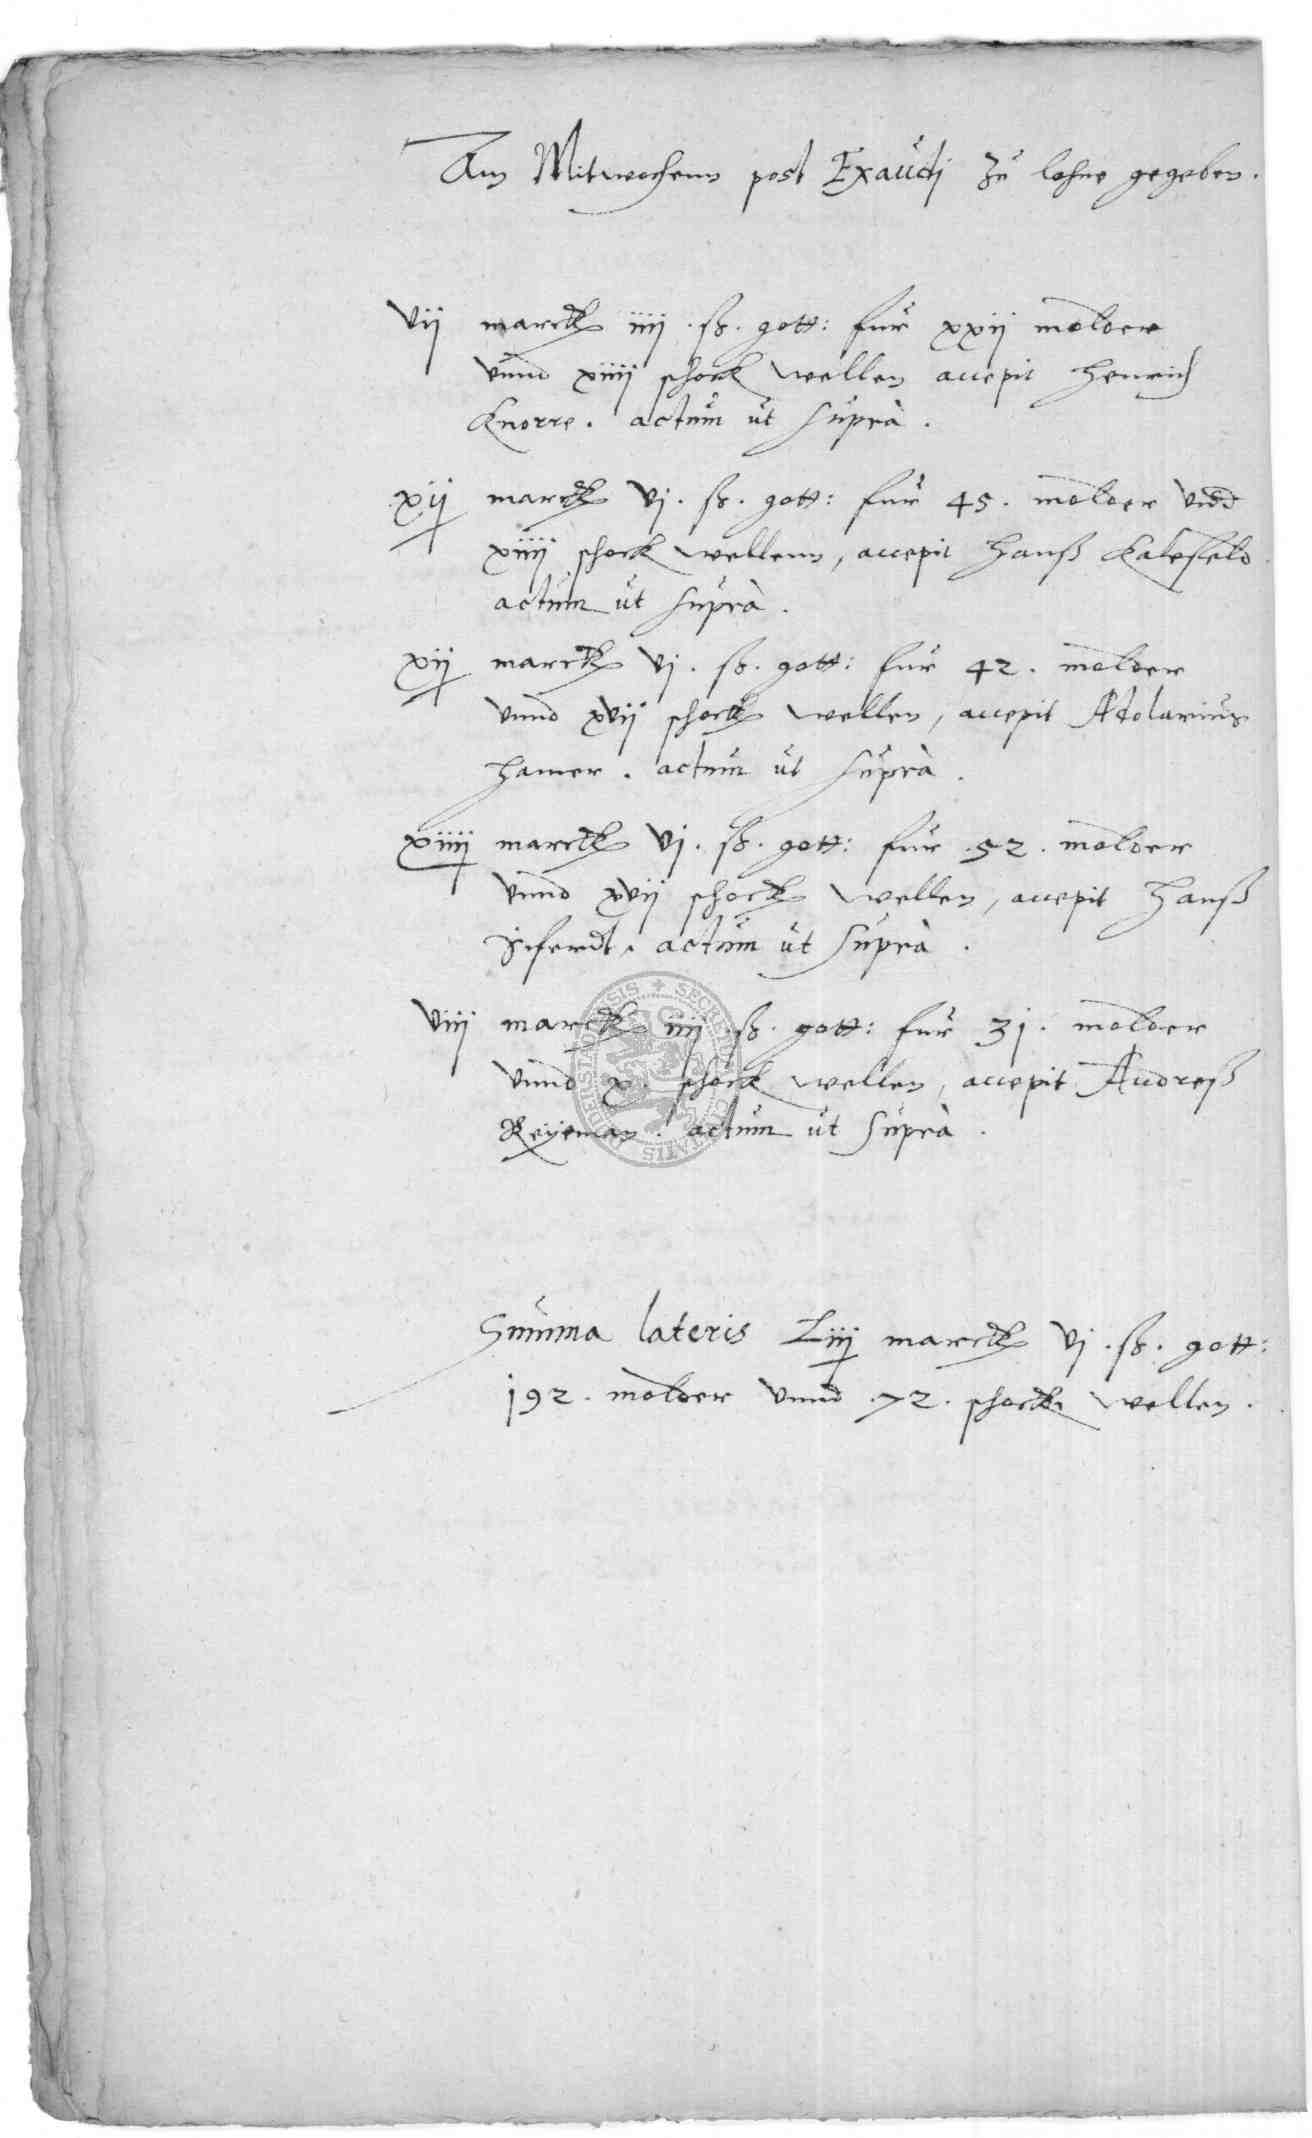 Am Mitwochenn post Exaudi zu lohne gegeben.
vij marck iiij .ß. gott: fur xxij molder
vnnd xiiij schock wellen accepit Henrich
Knorre. actum ut supra.
xij marck vj. ß. gott: fur 45. molder vnd
xiiij schock wellenn, accepit Hanß Katefeld
actum ut supra.
xij marck vj. ß. gott: fur 42. molder
vnnd xvij schock wellen, accepit Adolarius
Hamer. actum ut supra.
xiiij marck vj. ß. gott: fur .52. molder
vnnd xvij schock wellen, accepit Hanß
Siferdt. actum ut supra.
viij marck iiij .ß. gott: fur 31. molder
vnnd x. schock wellen, accepit Andreß
actum ut supra.
Summa lateris Liij marck vj .ß. gott:
192. molder vnnd .72. schock wellen.
SECRETUM CIVITATIS DUDERSTADENSIS